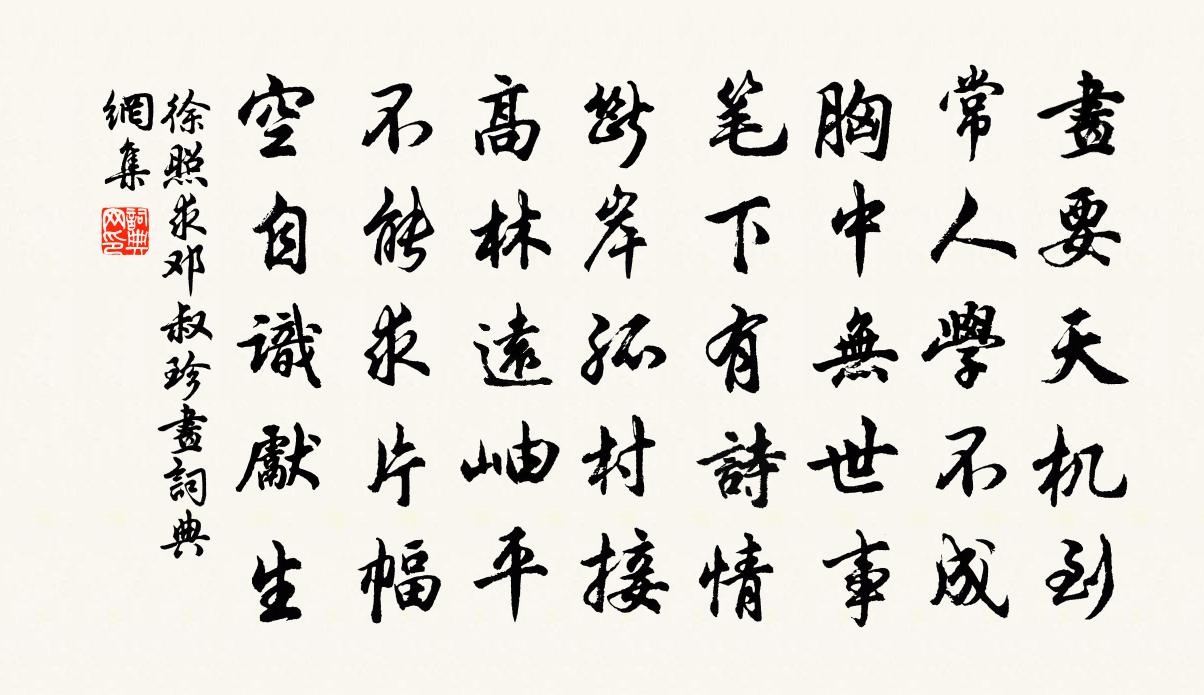 畫要天机到
常人學不成
胸中無世事
笔下有詩情
斷岸孤村接
高林遠岫平
不能求片幅
空自識獻生
徐照求邓叔珍畫詞典
網集
詞典网印